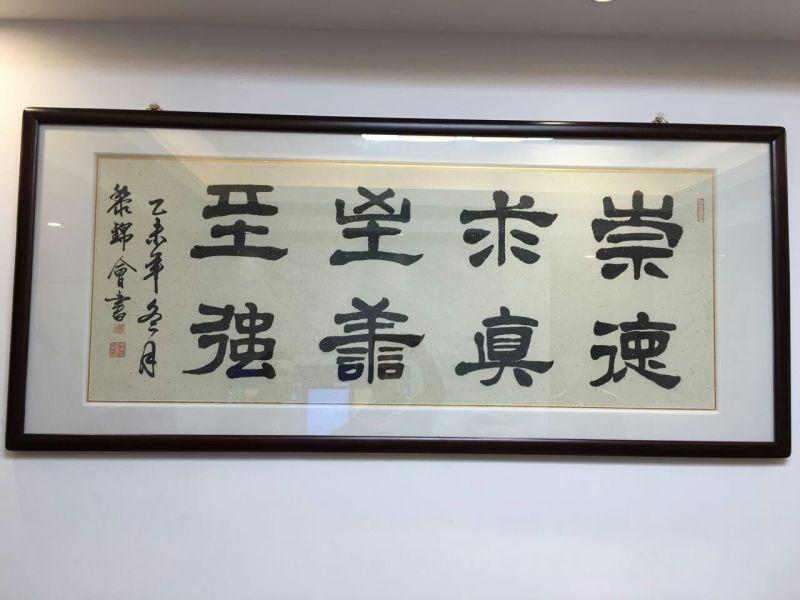 崇德
求真
至善
至强
乙未年冬月
黎錦會書